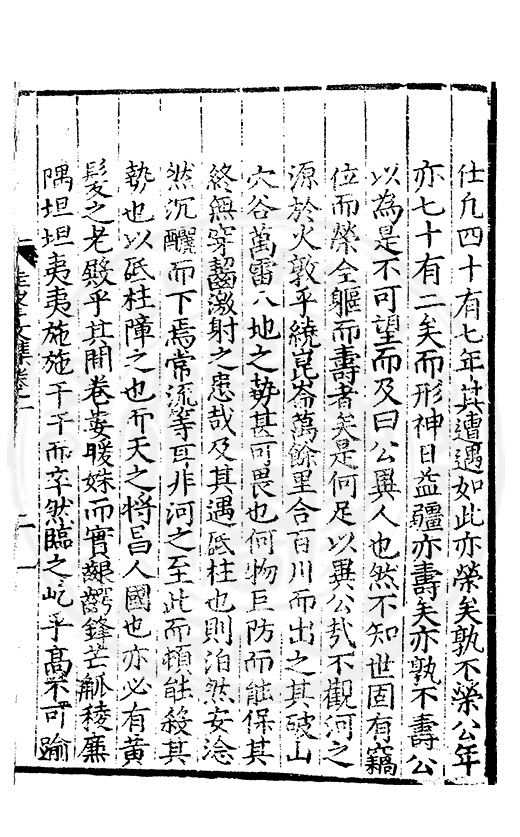 仕凢四十有七年其遭遇如此亦榮矣孰不榮公年
亦七十有二矣而形神日益疆亦壽矣亦孰不壽公
以為是不可望而及曰公異人也然不知世固有竊
位而榮仝軀而壽者矣是何足以異公㢤不觀河之
源於火敦乎繞崑崙萬餘里合百川而出之其破山
穴谷萬雷入地之勢甚可畏也何物巨防而能保其
終無穿齧激射之患哉及其遇砥柱也則泊然安淰
然沉釃而下焉常流等耳非河之至此而頓能殺其
勢也以砥柱障之也夫天之将昌人國也亦必有黃
髪之老殿乎其間卷婁暖姝而實齦齶鋒芒觚稜廉
隅坦坦夷夷施施于于而卒然臨之屹乎髙不可踰
二